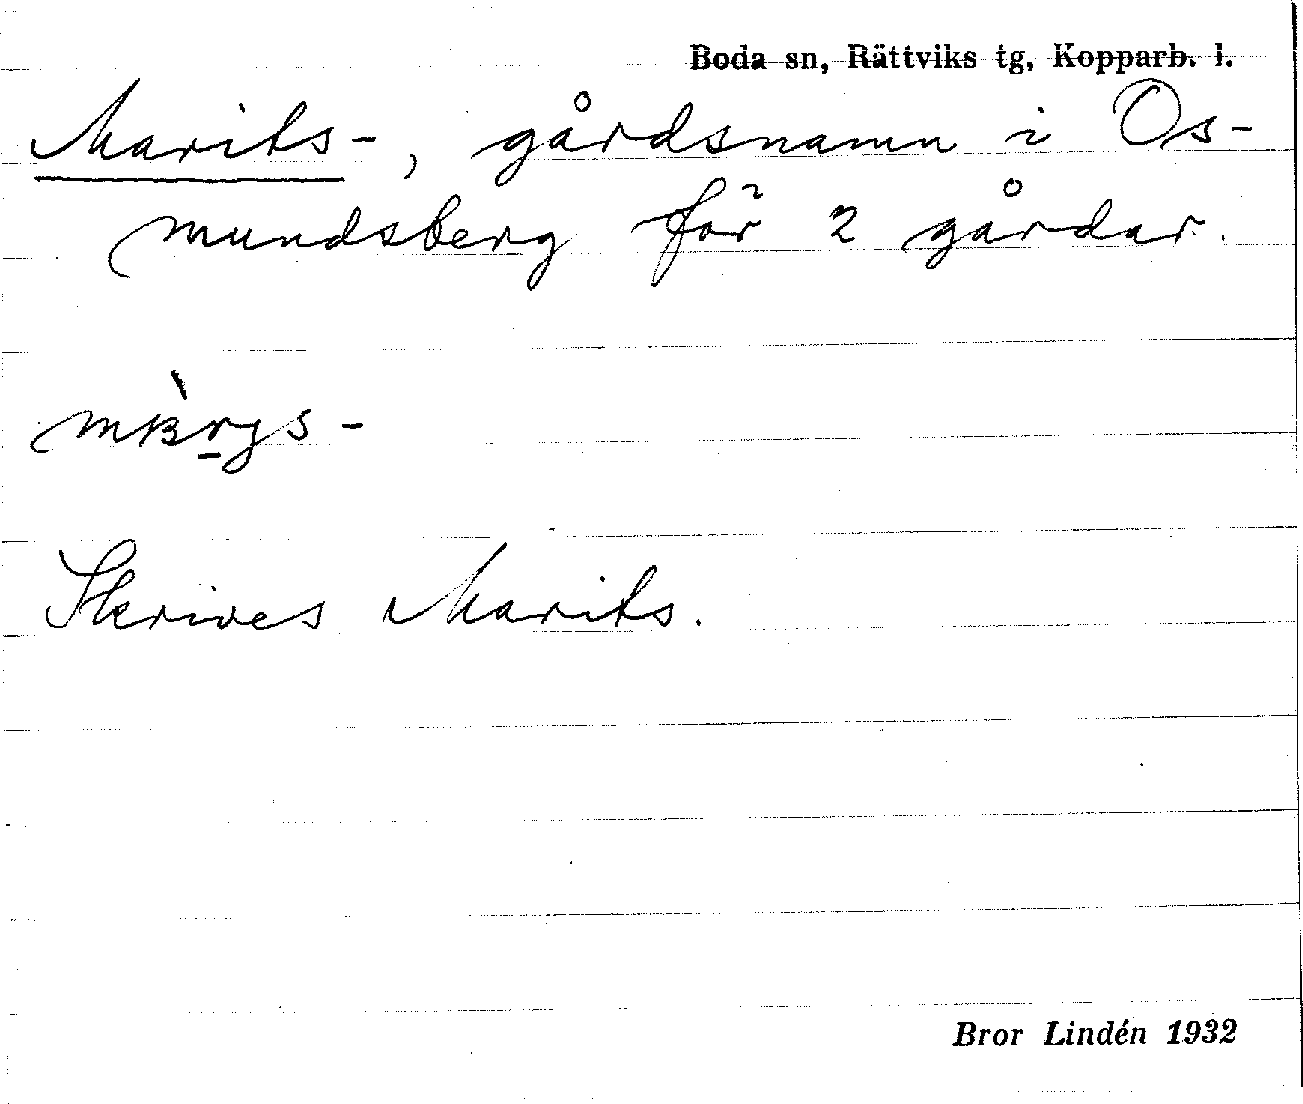 Boda sn, Rättviks tg, Kopparb. l.
Marits-, gårdsnamn i Os-
mundsberg för 2 gårdar.
Skrives Marits.
Bror Lindén 1932